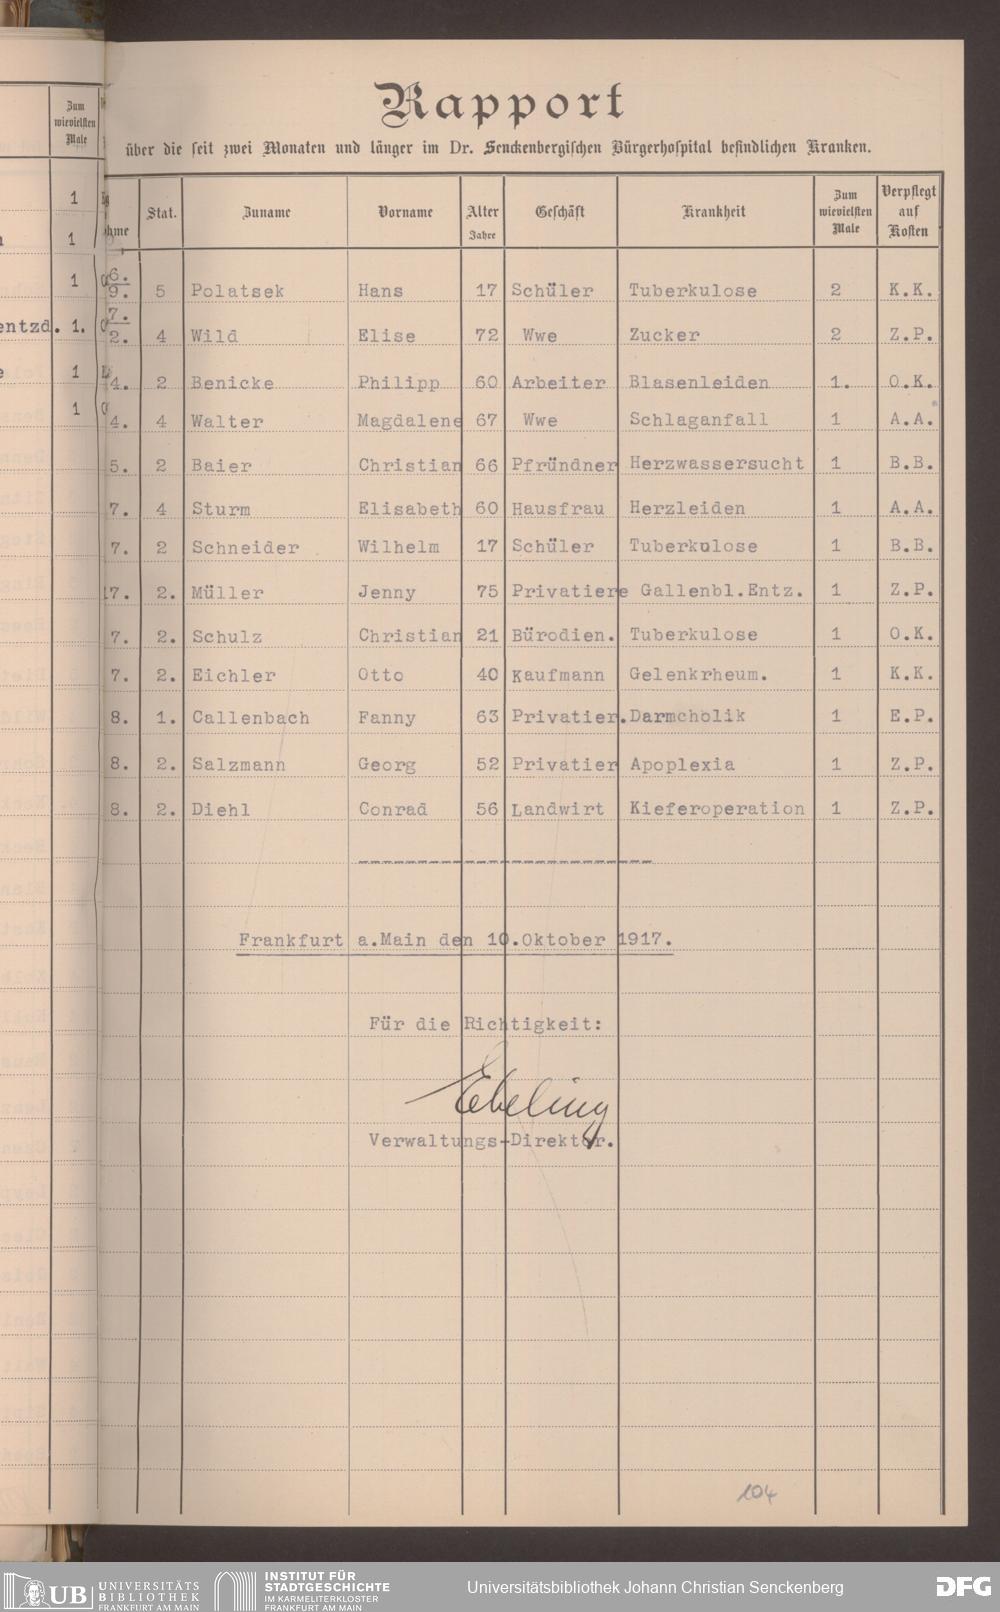 Zum
wievielsten
Male
1
1
1
entzd. 1.
e 1
1
Rapport
über die seit zwei Monaten und länger im Dr. Senckenbergischen Bürgerhospital befindlichen Kranken.
hme Stat. Zuname Vorname Alter Jahre Geschäft Krankheit Zum wievielsten Male Verpflegt auf Kosten
6.
9. 5 Polatsek Hans 17 Schüler Tuberkulose 2 K.K.
7.
2. 4 Wild Elise 72 Wwe Zucker 2 Z.P.
4. 2 Benicke Philipp 60 Arbeiter Blasenleiden 1. O.K.
4. 4 Walter Magdalene 67 Wwe Schlaganfall 1 A.A.
5. 2 Baier Christian 66 Pfründner Herzwassersucht 1 B.B.
7. 4 Sturm Elisabeth 60 Hausfrau Herzleiden 1 A.A.
7. 2 Schneider Wilhelm 17 Schüler Tuberkulose 1 B.B.
17. 2. Müller Jenny 75 Privatiere Gallenbl.Entz. 1 Z.P.
7. 2. Schulz Christian 21 Bürodien. Tuberkulose 1 O.K.
7. 2. Eichler Otto 40 Kaufmann Gelenkrheum. 1 K.K.
8. 1. Callenbach Fanny 63 Privatier. Darmcholik 1 E.P.
8. 2. Salzmann Georg 52 Privatier Apoplexia 1 Z.P.
8. 2. Diehl Conrad 56 Landwirt Kieferoperation 1 Z.P.
Frankfurt a.Main den 10.Oktober 1917.
Für die Richtigkeit:
Ebeling
Verwaltungs-Direktor.
104
UB UNIVERSITÄTS
BIBLIOTHEK
FRANKFURT AM MAIN
INSTITUT FÜR
STADTGESCHICHTE
IM KARMELITERKLOSTER
FRANKFURT AM MAIN
Universitätsbibliothek Johann Christian Senckenberg
DFG